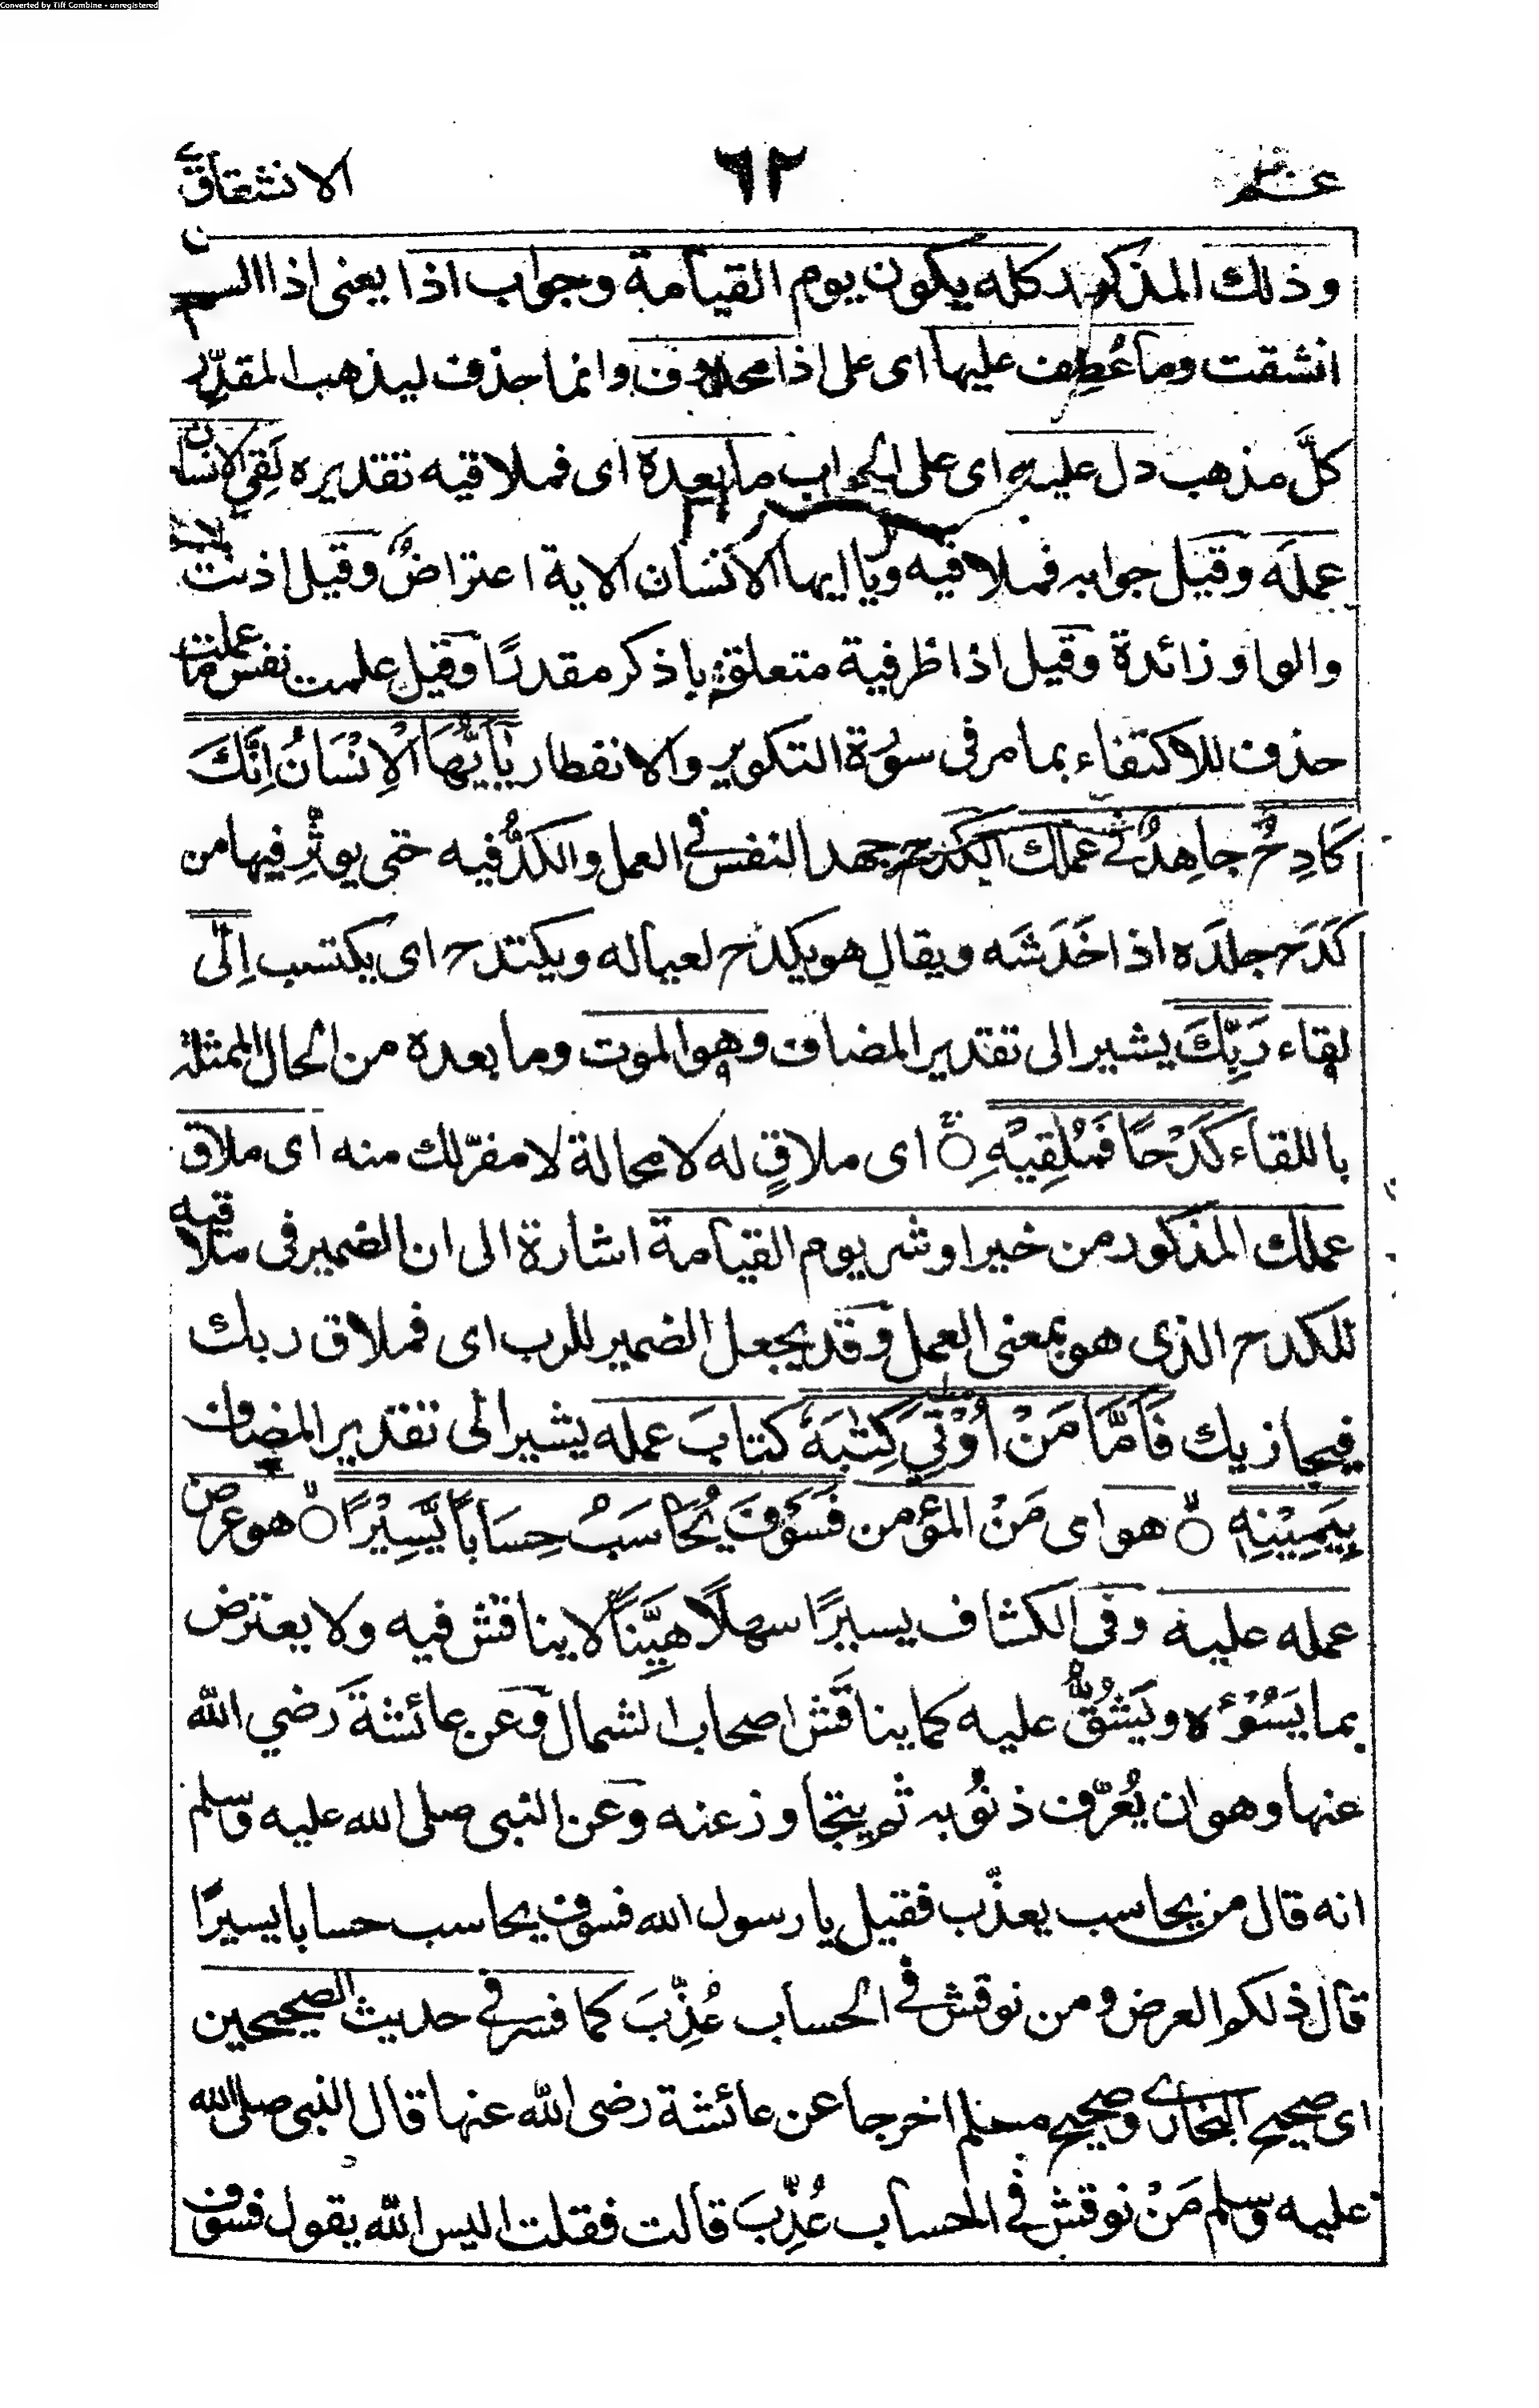 Converted by Tiff Combine - unregistered
عم ٦٢ الانشقاق
وذلك المذكور كله يكون يوم القيامة وجواب اذا يعنى اذا السماء
انشقت وما عُطِف عليها اى على اذا محذوف وانما حذف ليذهب المقدِّر
كلَّ مذهب دل عليه اى على الجواب ما بعده اى فملاقيه تقديره لَقِيَ الانسان
عملَه وقيل جوابه فملاقيه ويا ايها الانسان الاية اعتراضٌ وقيل اذنت
والواو زائدة وقيل اذا ظرفية متعلقة باذكر مقدرًا وقيل علمت نفس ما عملت
حذف للاكتفاء بما مر فى سورة التكوير والانفطار يٰٓاَيُّهَا الْاِنْسَانُ اِنَّكَ
كَادِحٌ جاهِدٌ فى عملك الكدح جهد النفس فى العمل والكدُّ فيه حتى يوثِّر فيها من
كَدَح جلدَه اذا خَدَشَه ويقال هو يكدح لعياله ويكتدح اى يكتسب اِلٰى
لقاء رَبِّكَ يشير الى تقدير المضاف وهو الموت وما بعده من الحال الممثلة
باللقاء كَدْحًا فَمُلٰقِيْهِ اى ملاقٍ له لا محالة لا مفرّ لك منه اى ملاق
عملك المذكور من خير او شر يوم القيامة اشارة الى ان الضمير فى ملاقيه
للكدح الذى هو بمعنى العمل وقد يجعل الضمير للرب اى فملاق ربك
فيجازيك فَاَمَّا مَنْ اُوْتِيَ كِتٰبَهٗ كتابَ عمله يشير الى تقدير المضاف
بِيَمِيْنِهٖ هو اى مَنْ المؤمن فَسَوْفَ يُحَاسَبُ حِسَابًا يَّسِيْرًا هو عرض
عمله عليه وفى الكشاف يسيرًا سهلًا هيِّنًا لا يناقش فيه ولا يعترض
بما يَسُوْءُه ويَشُقُّ عليه كما يناقَش اصحاب الشمال وعن عائشةَ رضي الله
عنها وهو ان يُعرَّف ذنُوبه ثم يتجاوز عنه وعن النبى صلى الله عليه وسلم
انه قال من يحاسب يعذَّب فقيل يا رسول الله فسوف يحاسب حسابا يسيرًا
قال ذلكم العرض ومن نوقش فى الحساب عُذِّبَ كما فسر فى حديث الصحيحين
اى صحيح البخارى وصحيح مسلم اخرجا عن عائشة رضى الله عنها قال النبى صلى الله
عليه وسلم مَنْ نوقش فى الحساب عُذِّبَ قالت فقلت اليس الله يقول فسوف